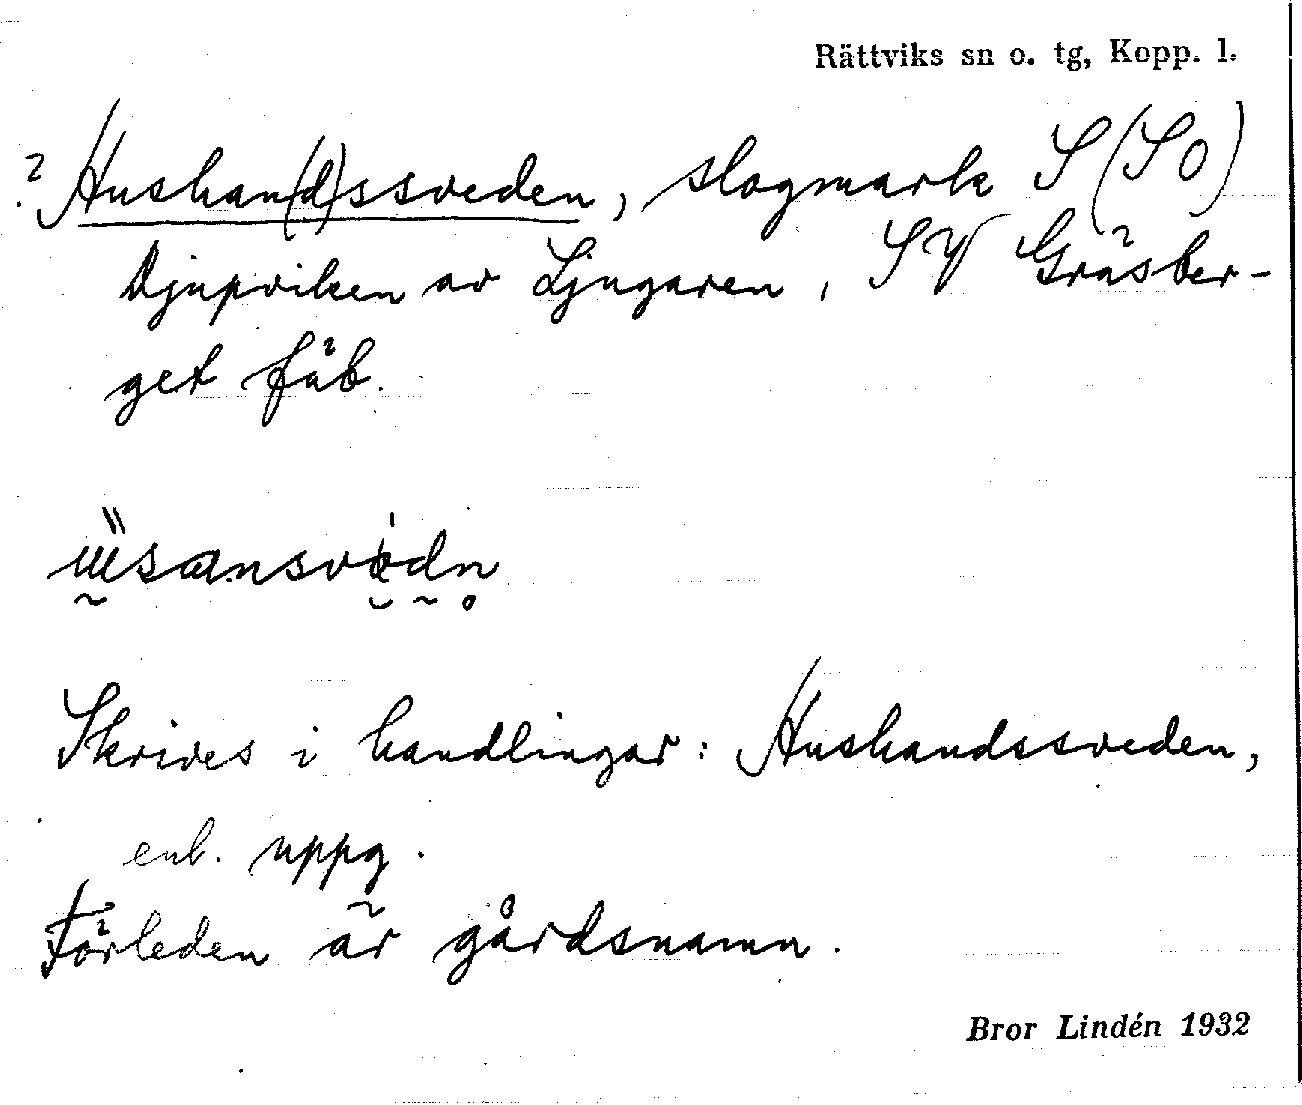 Rättviks sn o. tg, Kopp. l.
? Hushan(d)ssveden, slogmark S (SO)
Djupviken av Ljugaren, SV Gräsber-
get fäb.
Skrives i handlingar: Hushandssveden,
enl. uppg.
Förleden är gårdsnamn.
Bror Lindén 1932